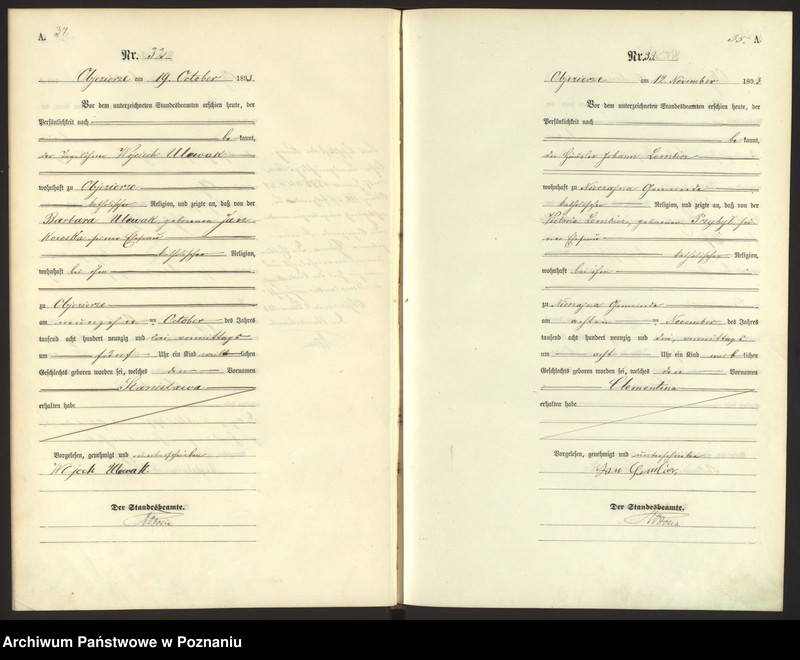 A.
Nr. 32
Objezierze am 19. October 1893
Vor dem unterzeichneten Standesbeamten erschien heute, der
Persönlichkeit nach
be kannt,
der Wojciech Nowak
wohnhaft zu Objezierze
katholischer Religion, und zeigte an, daß von der
Barbara Nowak, geborenen
seiner Ehefrau
katholischer Religion,
wohnhaft bei ihm
zu Objezierze
am October des Jahres
tausend acht hundert neunzig und drei, vormittags
um fünf Uhr ein Kind weiblichen
Geschlechts geboren worden sei, welches den Vornamen
Stanislawa
erhalten habe
Vorgelesen, genehmigt und unterschrieben
Nowak.
Der Standesbeamte.
35. A.
Nr. 33
Objezierze am 12. November 1893
Vor dem unterzeichneten Standesbeamten erschien heute, der
Persönlichkeit nach
be kannt,
der Häusler Johann
wohnhaft zu Gemeinde
katholischer Religion, und zeigte an, daß von der
geborenen Przybył sei
ner Ehefrau
katholischer Religion,
wohnhaft bei ihm
zu Gemeinde
am November des Jahres
tausend acht hundert neunzig und drei, vormittags
um acht Uhr ein Kind weiblichen
Geschlechts geboren worden sei, welches den Vornamen
Clementina
erhalten habe
Vorgelesen, genehmigt und unterschrieben
Jan
Der Standesbeamte.
Archiwum Państwowe w Poznaniu